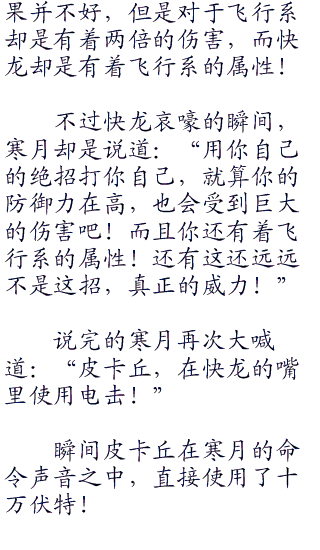 果并不好，但是对于飞行系
却是有着两倍的伤害，而快
龙却是有着飞行系的属性！
不过快龙哀嚎的瞬间，
寒月却是说道：“用你自己
的绝招打你自己，就算你的
防御力在高，也会受到巨大
的伤害吧！而且你还有着飞
行系的属性！还有这还远远
不是这招，真正的威力！”
说完的寒月再次大喊
道：“皮卡丘，在快龙的嘴
里使用电击！”
瞬间皮卡丘在寒月的命
令声音之中，直接使用了十
万伏特！